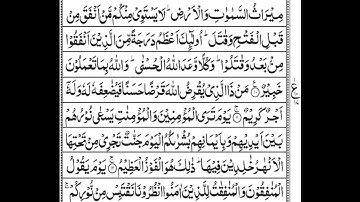 مِيْرَاثُ السَّمٰوٰتِ وَالْاَرْضِ ؕ لَا يَسْتَوِىْ مِنْكُمْ مَّنْ اَنْفَقَ مِنْ
قَبْلِ الْفَتْحِ وَقٰتَلَ ؕ اُولٰٓئِكَ اَعْظَمُ دَرَجَةً مِّنَ الَّذِيْنَ اَنْفَقُوْا
مِنْۢ بَعْدُ وَقٰتَلُوْا ؕ وَكُلًّا وَّعَدَ اللّٰهُ الْحُسْنٰى ؕ وَاللّٰهُ بِمَا تَعْمَلُوْنَ
خَبِيْرٌ ۟ مَنْ ذَا الَّذِىْ يُقْرِضُ اللّٰهَ قَرْضًا حَسَنًا فَيُضٰعِفَهٗ لَهٗ وَلَهٗۤ
اَجْرٌ كَرِيْمٌ ۟ يَوْمَ تَرَى الْمُؤْمِنِيْنَ وَالْمُؤْمِنٰتِ يَسْعٰى نُوْرُهُمْ
بَيْنَ اَيْدِيْهِمْ وَبِاَيْمَانِهِمْ بُشْرٰىكُمُ الْيَوْمَ جَنّٰتٌ تَجْرِىْ مِنْ تَحْتِهَا
الْاَنْهٰرُ خٰلِدِيْنَ فِيْهَا ؕ ذٰلِكَ هُوَ الْفَوْزُ الْعَظِيْمُ ۟ يَوْمَ يَقُوْلُ
الْمُنٰفِقُوْنَ وَالْمُنٰفِقٰتُ لِلَّذِيْنَ اٰمَنُوا انْظُرُوْنَا نَقْتَبِسْ مِنْ نُّوْرِكُمْ ۚ